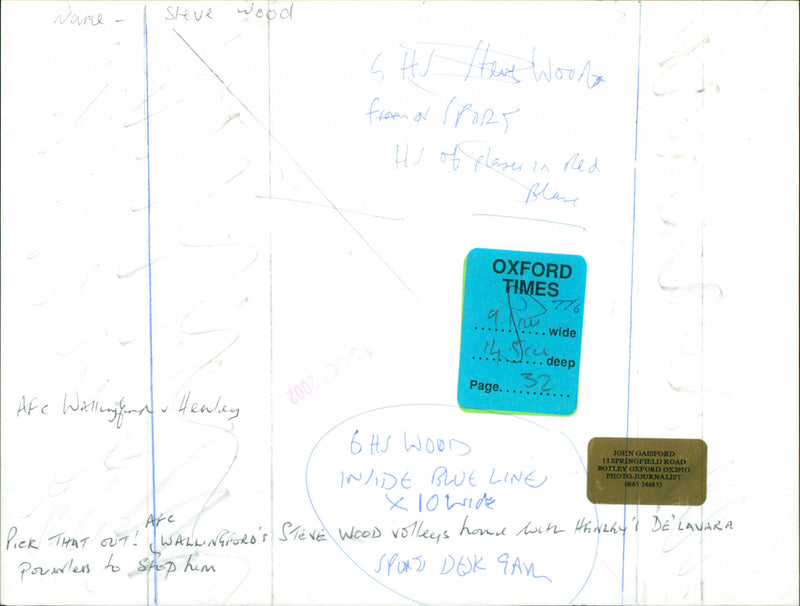 Name - Steve Wood
6 HS Steve Wood
from or SPORT
HS of player in Red
OXFORD
TIMES
776
9.1cm wide
14.5cm deep
Page 32
2002
AFC Wallingford v Henley
6 HS WOOD
INSIDE BLUE LINES
X 10 wide
JOHN GAISFORD
13 SPRINGFIELD ROAD
BOTLEY OXFORD OX29HJ
PHOTO-JOURNALIST
0865 246855
AFC
PICK THAT OUT! WALLINGFORD'S STEVE WOOD volleys home with HENLEY'S DE'LAVARA
powerless to stop him
SPORTS DESK 9AM